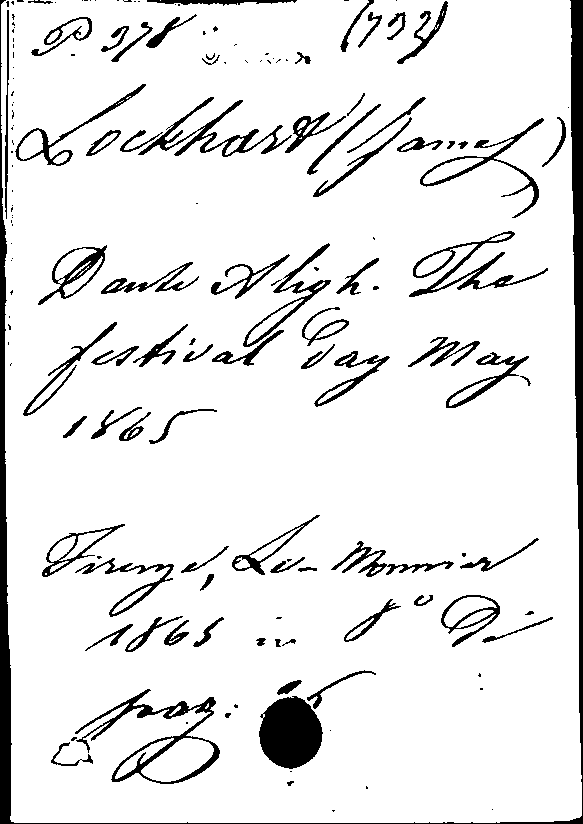 P. 378 (732)
Lockhart (James)
Dante Aligh. The
festival day May
1865
Firenze, Le-Monnier
1865 in 8° Di
pag: